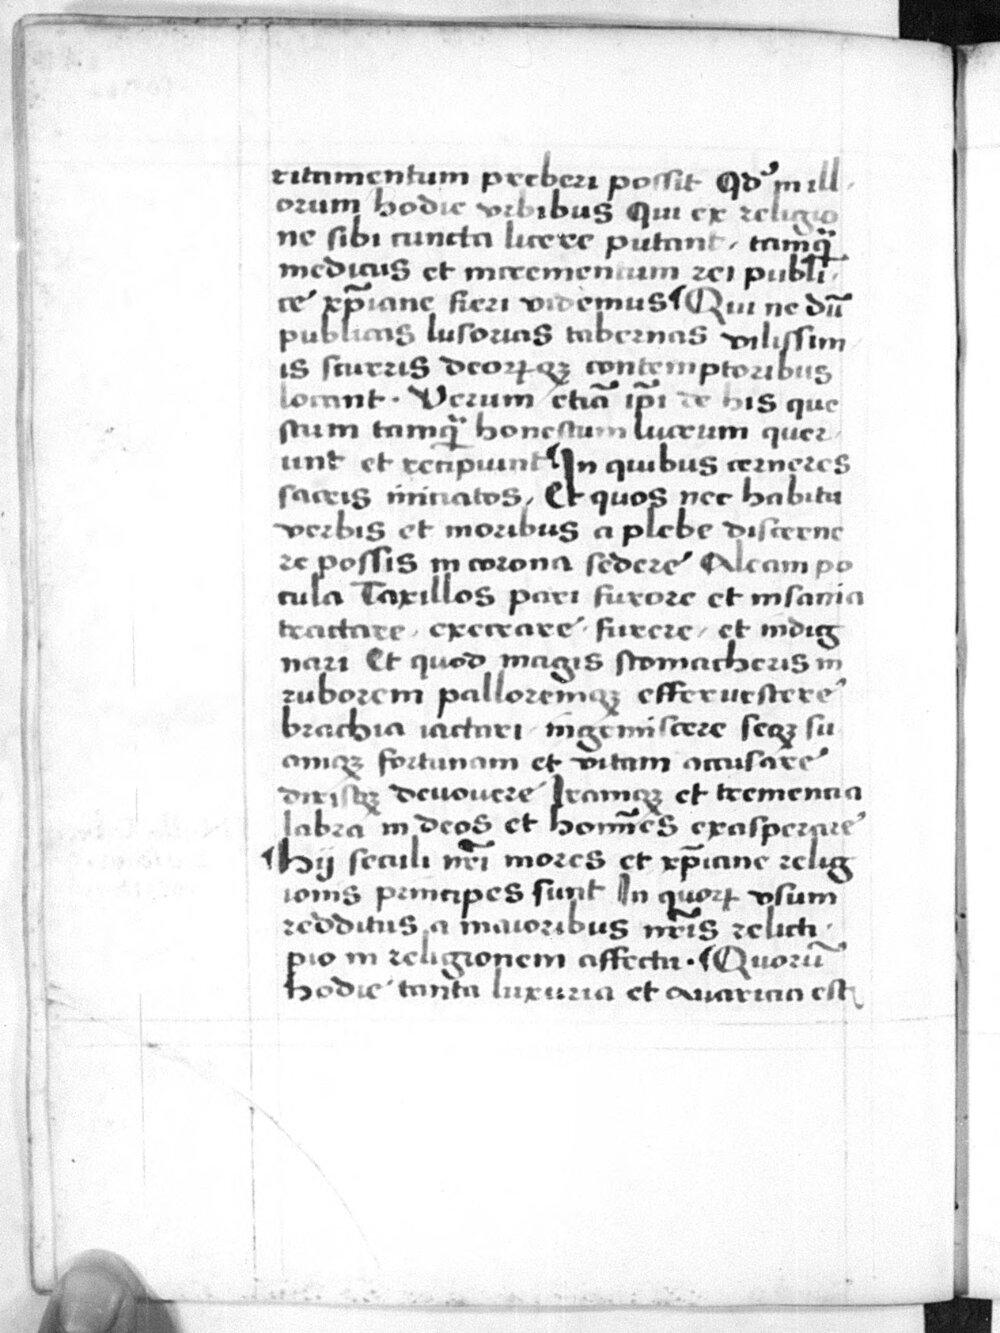 ritamentum preberi possit Qd' in ill
orum hodie vrbibus Qui ex religio
ne sibi cuncta licere putant, tamq̃
medicus et incrementum rei publi,
ce xp̃iane fieri videmus Qui ne dũ
publicas lusorias tabernas vilissim
is scurris deorꝝqꝫ contemptoribus
locant. Verum etiã ip̃i de his que
stum tamq̃ honestum lucrum quer,
unt et recipiunt In quibus cerneres
sacris iniciatos, Et quos nec habitu
verbis et moribus a plebe discerne
re possis in corona sedere Aleam po
cula Taxillos pari furore et insania
tractare, execrare, furere, et indig
nari Et quod magis stomacheris in
ruborem palloremqꝫ efferuescere
brachia iactari ingemiscere seqꝫ su
amqꝫ fortunam et vitam accusare
dirisqꝫ deuouere Iramqꝫ et trementia
labra in deos et homĩes exasperare
Hij seculi nr̃i mores et xp̃iane relig
ionis principes sunt In quorꝝ vsum
redditus a maioribus nr̃is relicti,
pio in religionem affectu. Quorũ
hodie tanta luxuria et auaritia est